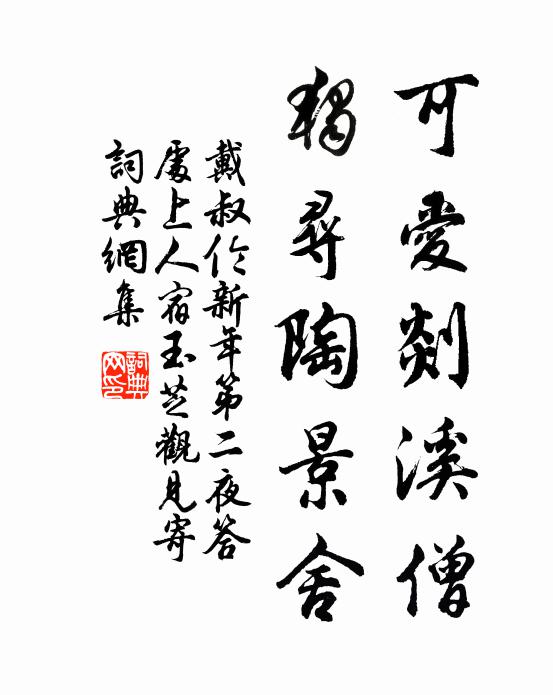 可愛剡溪僧
獨尋陶景舍
戴叔倫新年第二夜答
處上人宿玉芝觀見寄
詞典網集
詞典網印